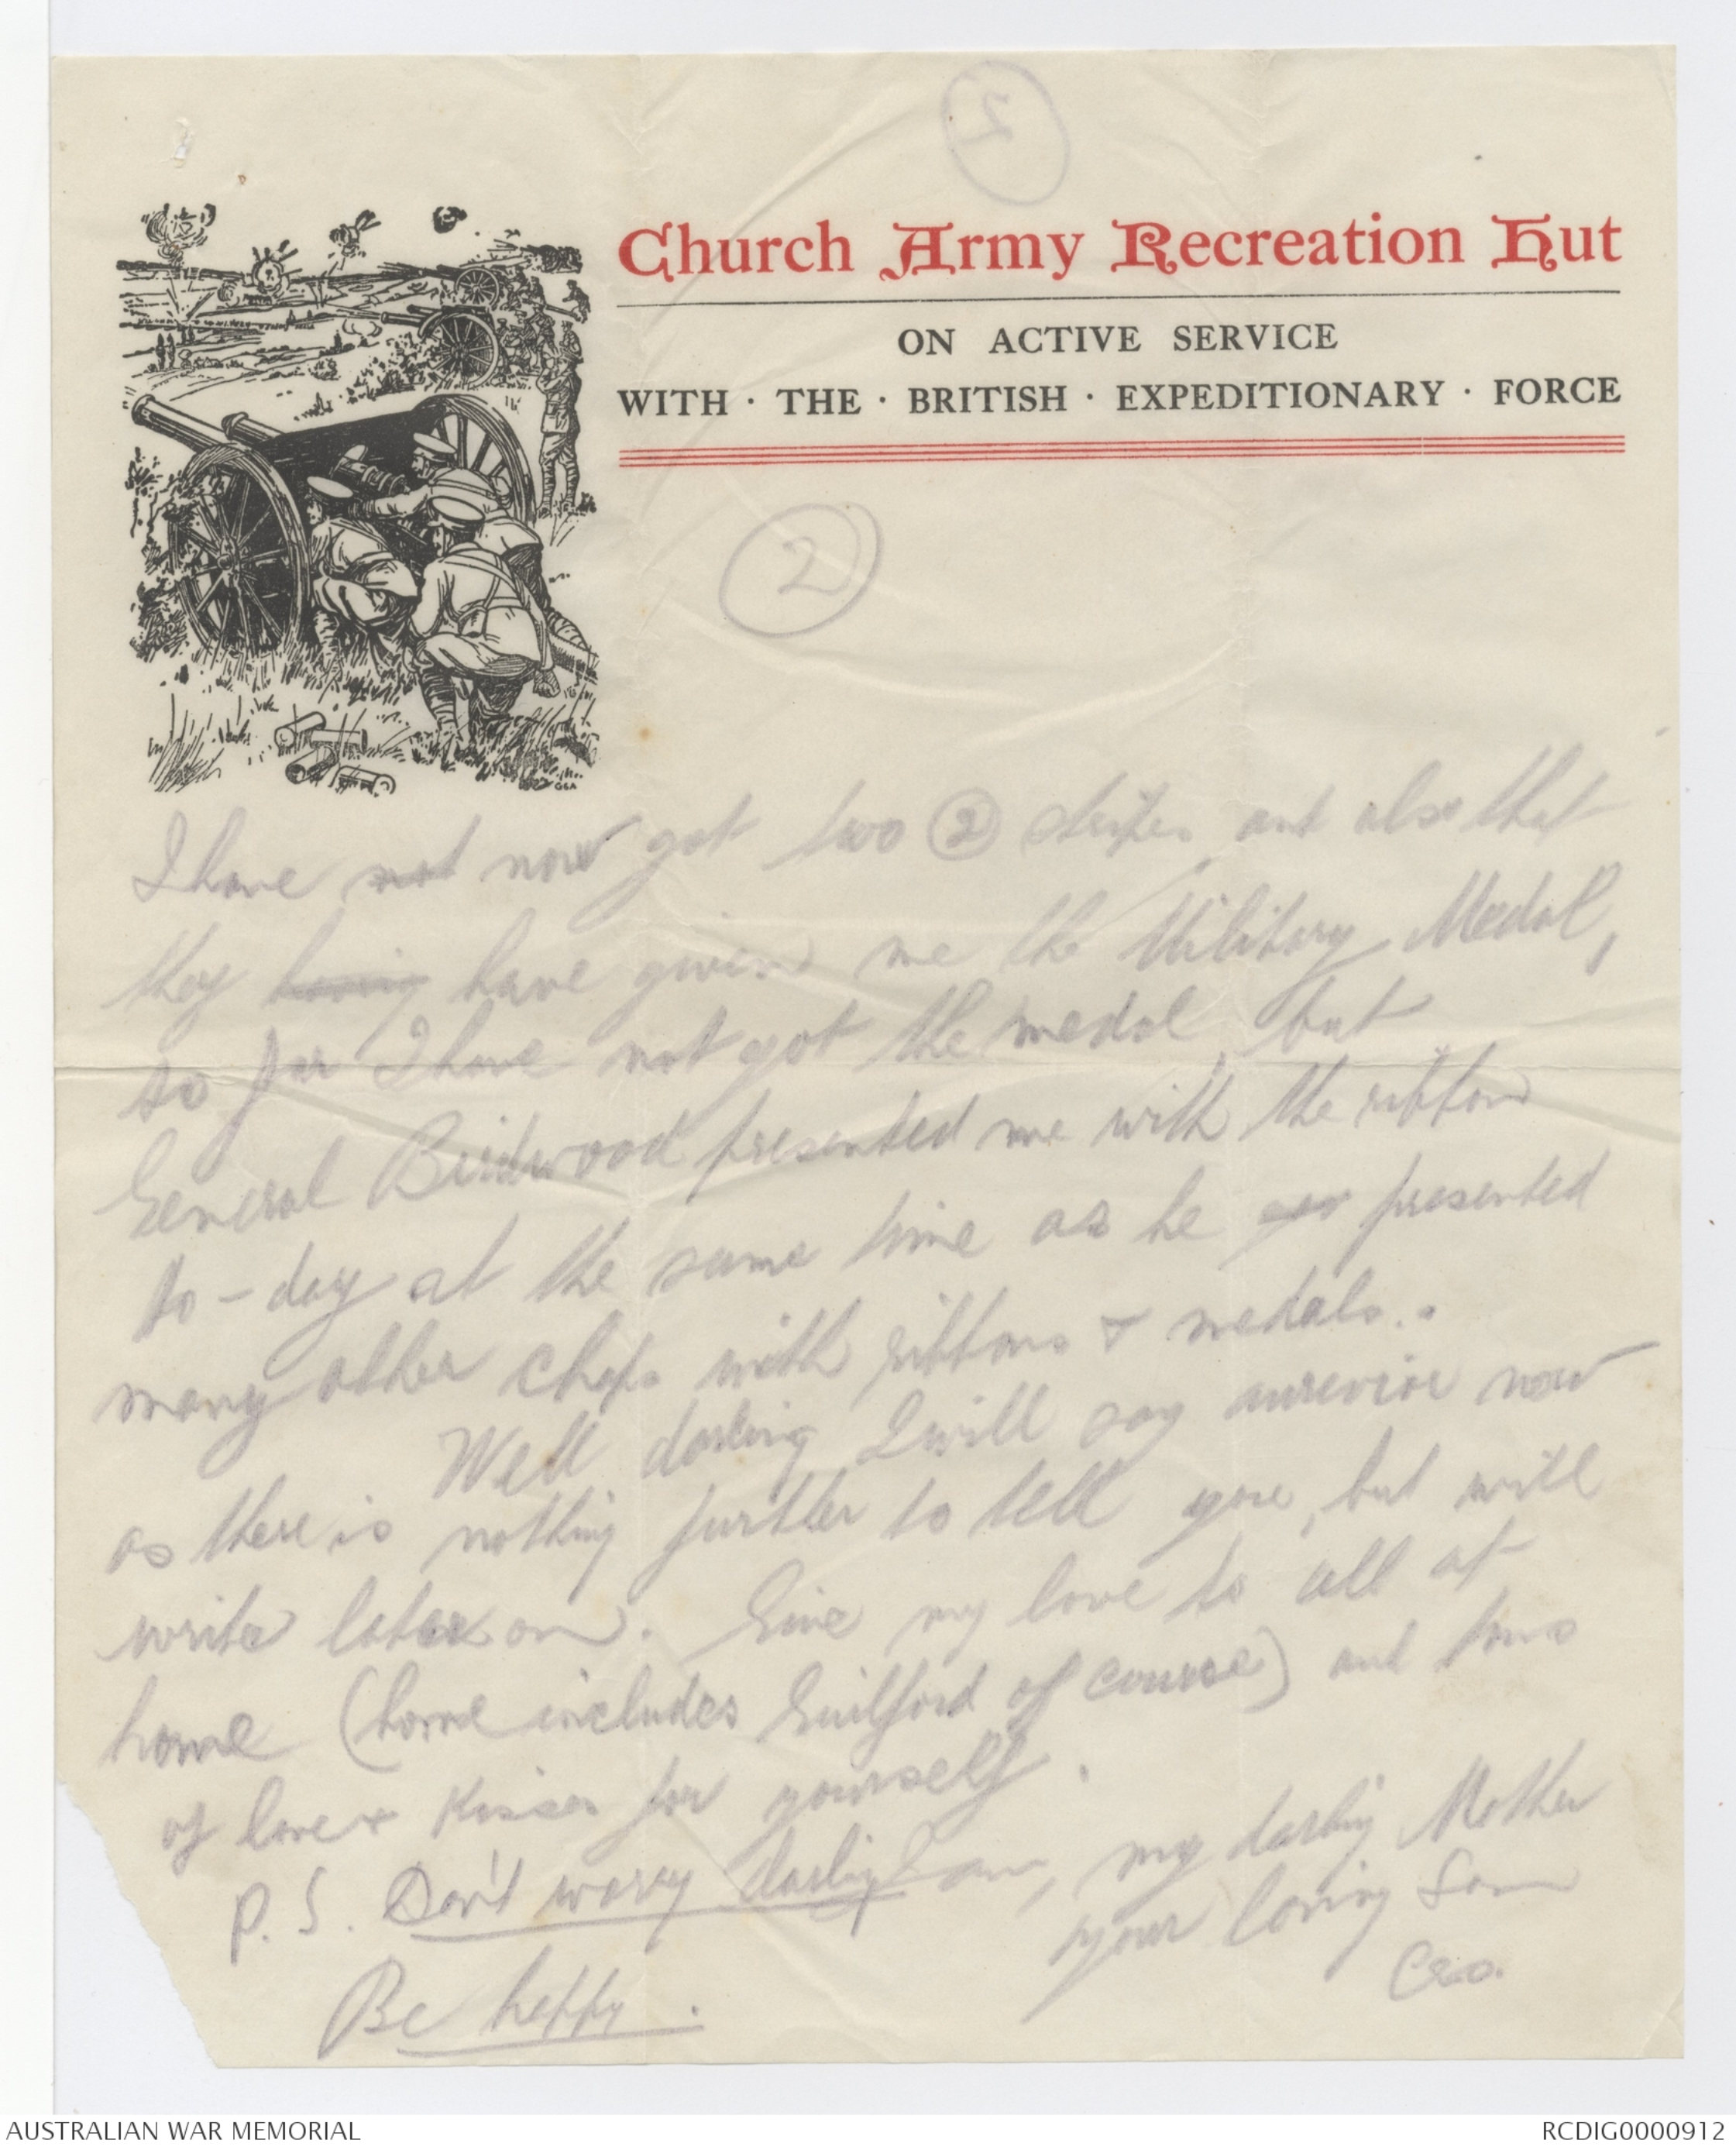 2
Church Army Recreation Hut
ON ACTIVE SERVICE
WITH · THE · BRITISH · EXPEDITIONARY · FORCE
2
I have not now got two ② stripes, and also that
they having have given me the Military Medal,
so far I have not got the medal, but
General Birdwood presented me with the ribbon
to-day at the same time as he presented
many other chaps with ribbons & medals..
Well darling I will say aurevior now
as there is nothing further to tell you, but will
write later on. Give my love to all at
home (home includes Guilford of course) and tons
of love & Kisses for yourself.
P.S. Don't worry darling I am, my darling Mother
your loving Son
Geo.
Be happy.
AUSTRALIAN WAR MEMORIAL
RCDIG0000912